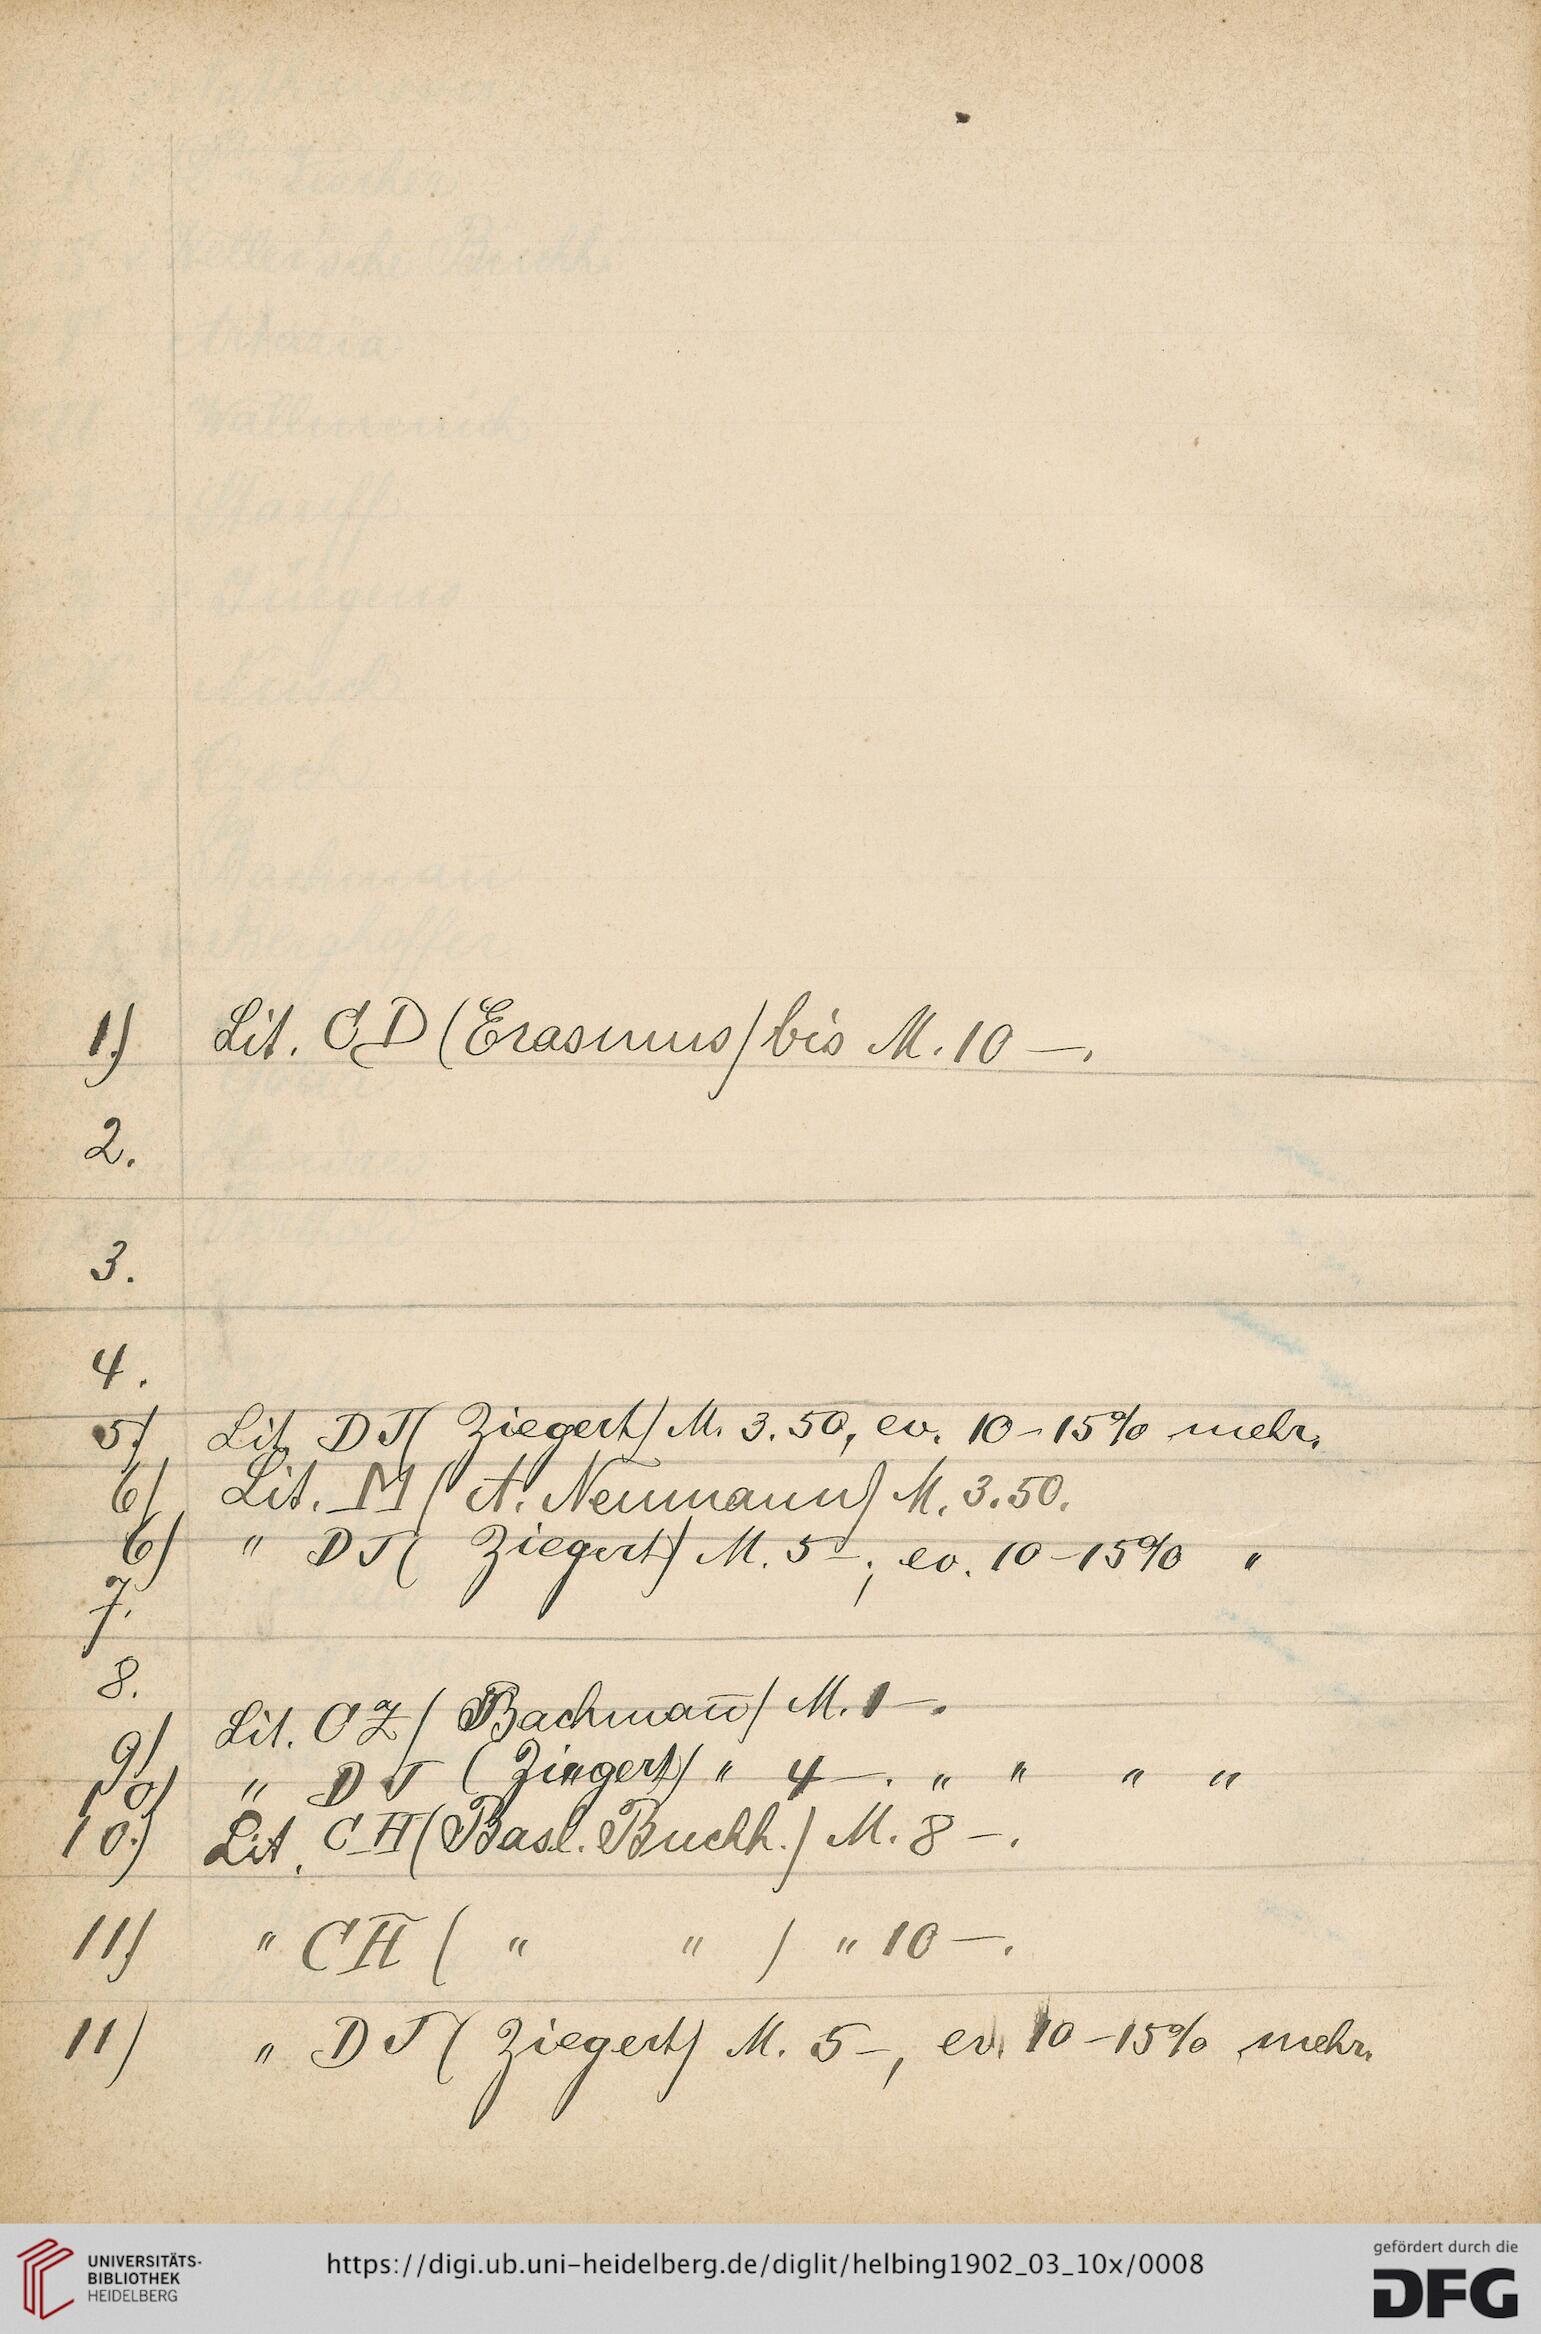 1.) Lit. CD (Erasmus) bis M. 10 —.
2.
3.
4.
5.) Lit. DJ ( Ziegert) M. 3.50, ev. 10-15% mehr.
6) Lit. M ( A. Neumann) M. 3.50.
6) " DJ ( Ziegert) M. 5 —; ev. 10-15% "
7.
8.
9) Lit. CZ ( Bachmañ) M. 1 —.
10) " DJ (Ziegert) " 4 —. " " " "
10.) Lit. CH (Basl. Buchh.) M. 8 —.
11.) " CH ( " " ) " 10 —.
11) " DJ ( Ziegert) M. 5 —, ev. 10-15% mehr.
UNIVERSITÄTS-
BIBLIOTHEK
HEIDELBERG
https://digi.ub.uni-heidelberg.de/diglit/helbing1902_03_10x/0008
gefördert durch die
DFG